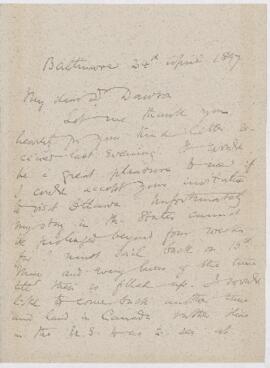 Baltimore 24th April 1897
My dear Dr Dawson
Let me thank you
heartily for your kind letter re-
ceived last evening. It would
be a great pleasure to me if
I could accept your invitation
to visit Ottawa. Unfortunately
my stay in the States cannot
be prolonged beyond four weeks
for I must sail back on 15th
and every hour of the time
till then is filled up. I would
like to come back another time
and land in Canada rather than
in the U.S. so as to see at